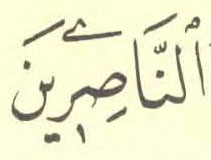 ٱلنَّاصِرِينَ